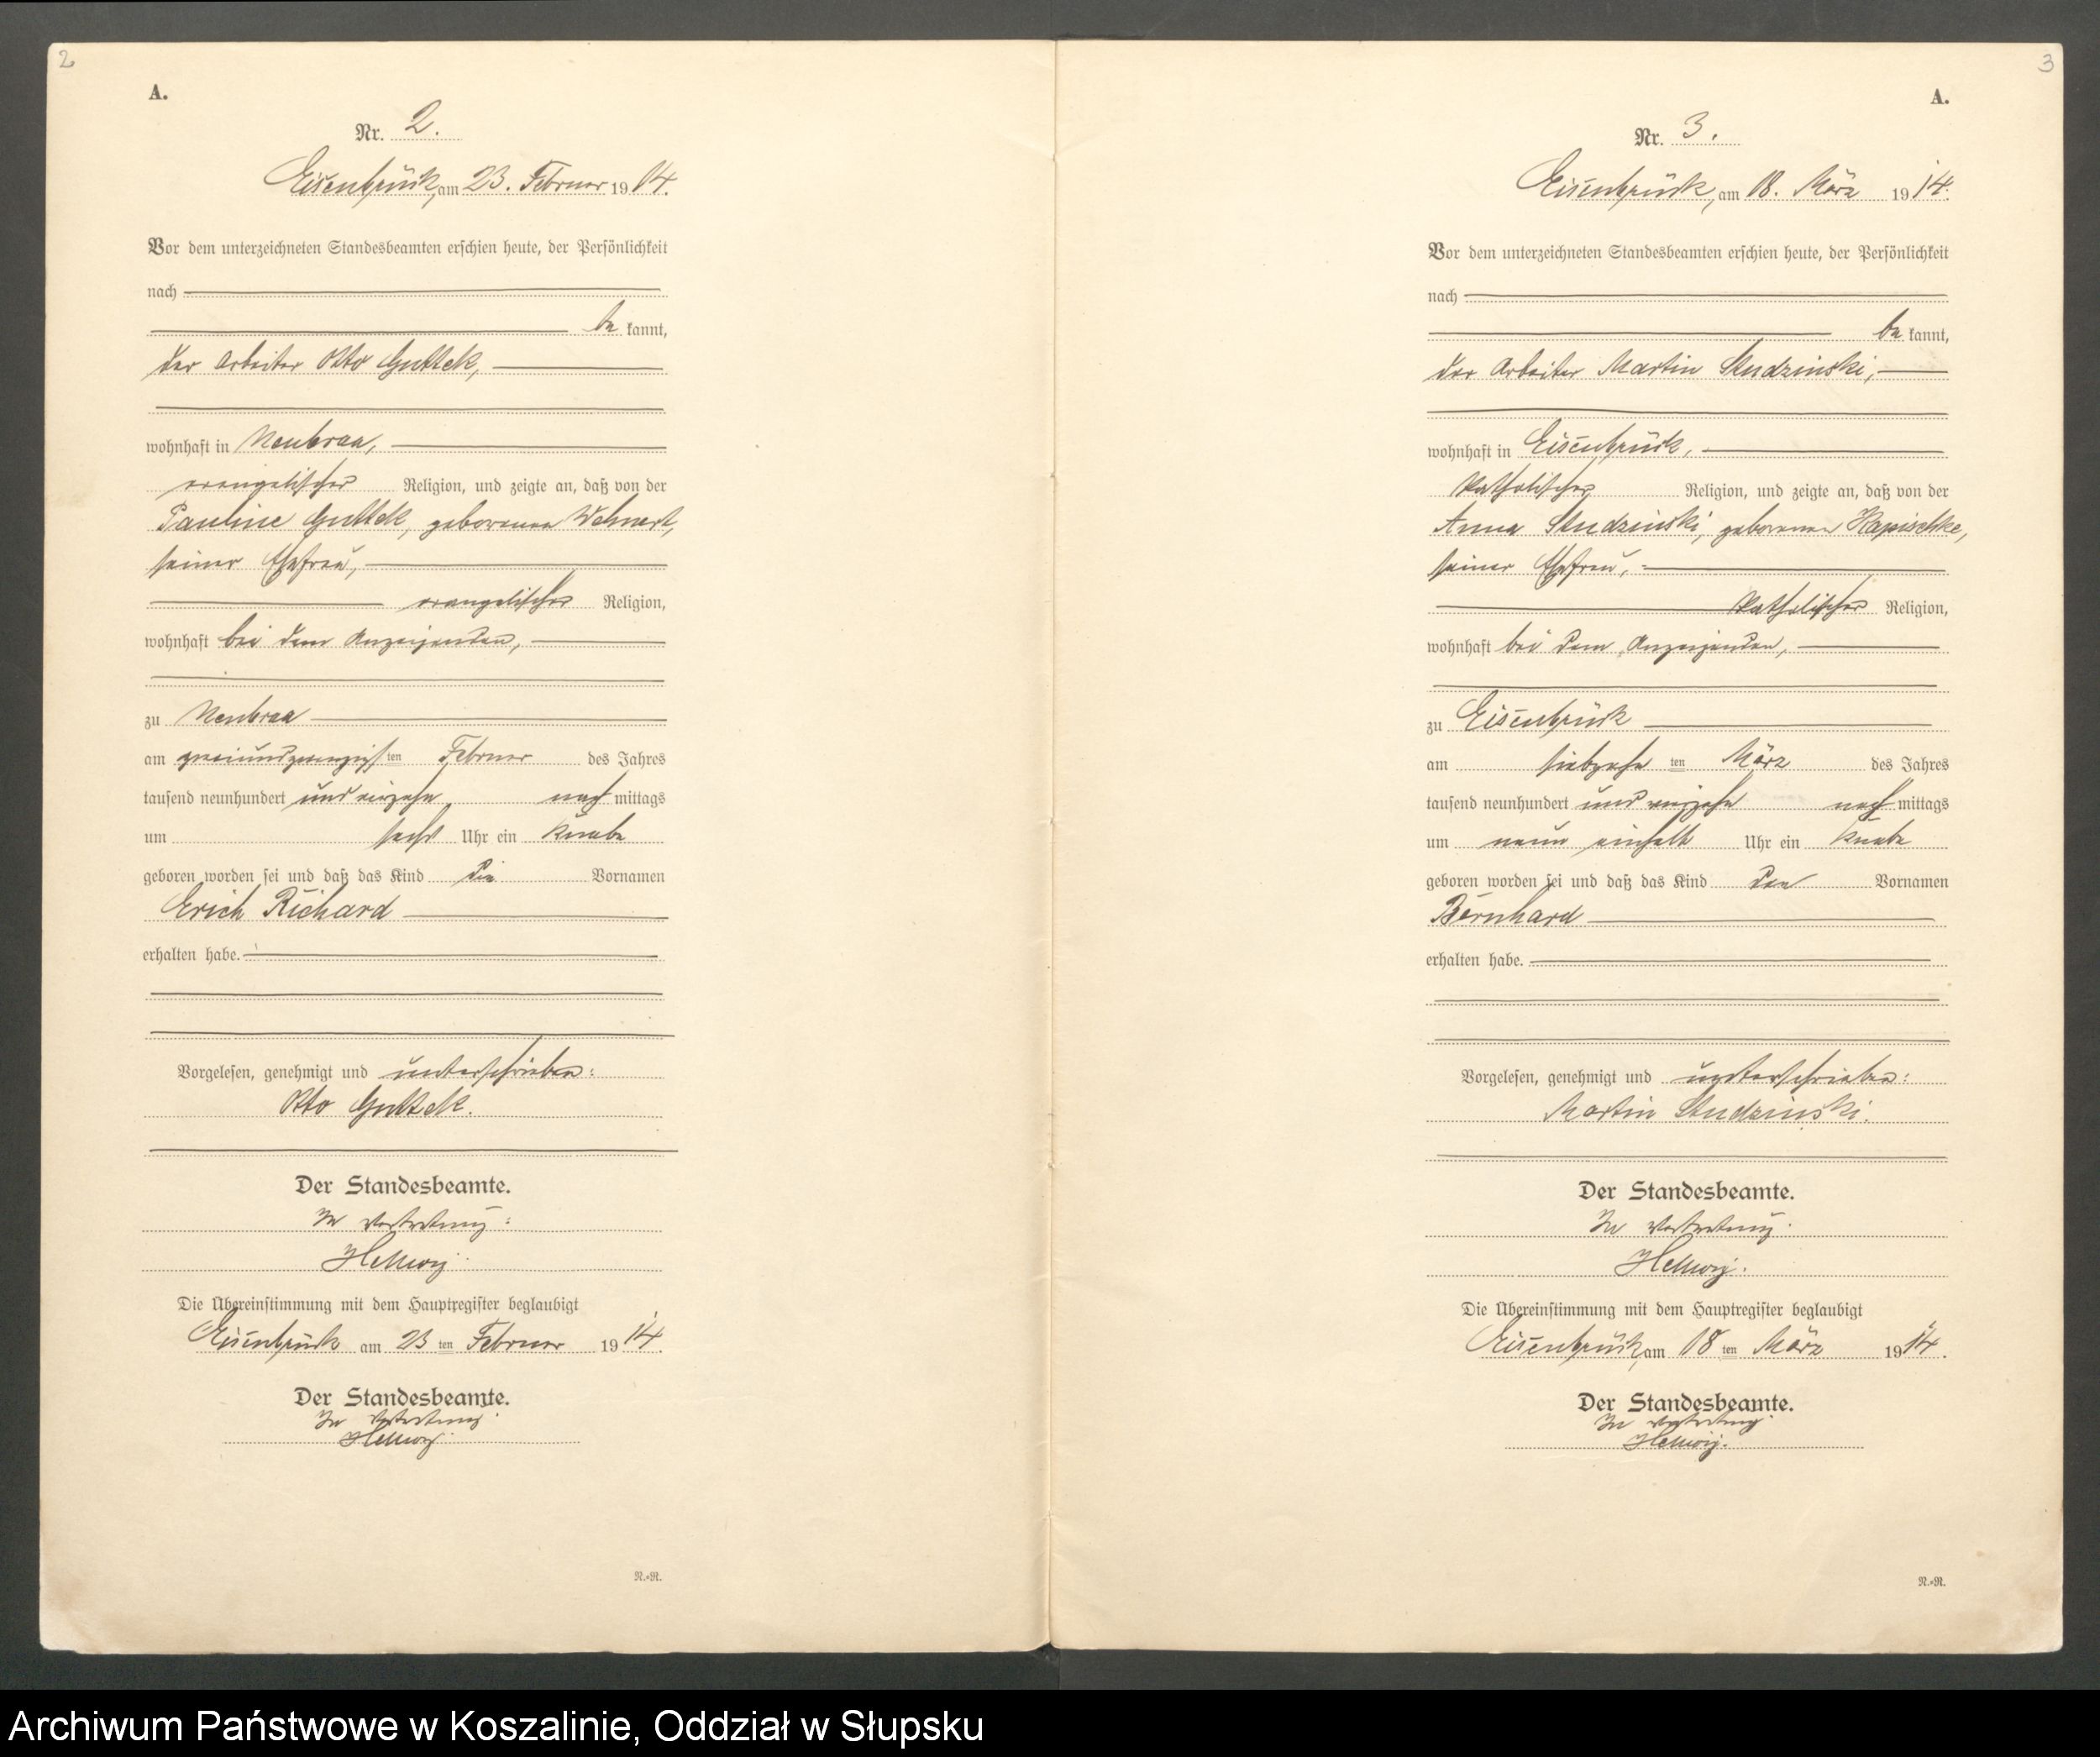 2
A.
Nr. 2.
Eisenbrück, am 23. Februar 1914.
Vor dem unterzeichneten Standesbeamten erschien heute, der Persönlichkeit
nach
be kannt,
der Arbeiter Otto Guttek,
wohnhaft in Neubraa,
evangelischer Religion, und zeigte an, daß von der
Pauline Guttek, geborenen Wehnert,
seiner Ehefrau,
evangelischer Religion,
wohnhaft bei dem Anzeigenden,
zu Neubraa
am zweiundzwanzigsten Februar des Jahres
tausend neunhundert und vierzehn nachmittags
um sechs Uhr ein Knabe
geboren worden sei und daß das Kind die Vornamen
Erich Richard
erhalten habe.
Vorgelesen, genehmigt und unterschrieben:
Otto Guttek.
Der Standesbeamte.
In Vertretung:
Hellwig.
Die Übereinstimmung mit dem Hauptregister beglaubigt
Eisenbrück am 23 ten Februar 1914.
Der Standesbeamte.
In Vertretung.
Hellwig.
N.=N.
3
A.
Nr. 3.
Eisenbrück, am 18. März 1914.
Vor dem unterzeichneten Standesbeamten erschien heute, der Persönlichkeit
nach
be kannt,
der Arbeiter Martin Studzinski,
wohnhaft in Eisenbrück,
katholischer Religion, und zeigte an, daß von der
Anna Studzinski, geborenen Kapischke,
seiner Ehefrau,
katholischer Religion,
wohnhaft bei dem Anzeigenden,
zu Eisenbrück
am siebzehn ten März des Jahres
tausend neunhundert und vierzehn nachmittags
um neun einhalb Uhr ein Knabe
geboren worden sei und daß das Kind den Vornamen
Bernhard
erhalten habe.
Vorgelesen, genehmigt und unterschrieben:
Martin Studzinski.
Der Standesbeamte.
In Vertretung.
Hellwig.
Die Übereinstimmung mit dem Hauptregister beglaubigt
Eisenbrück, am 18 ten März 1914.
Der Standesbeamte.
In Vertretung.
Hellwig.
N.=N.
Archiwum Państwowe w Koszalinie, Oddział w Słupsku